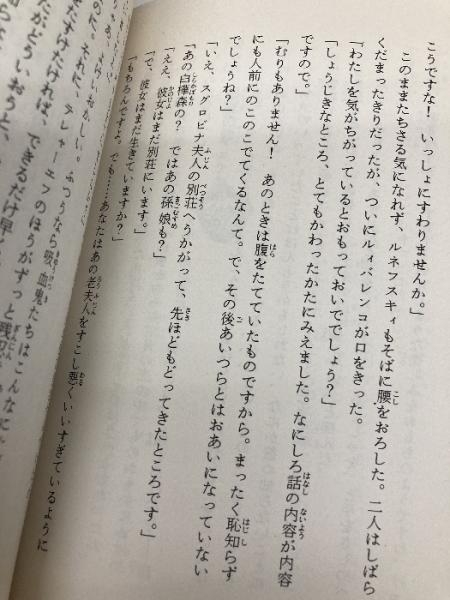 こうですな！　いっしょにすわりませんか。」
このままたちさる気になれず、ルネフスキィもそばに腰をおろした。二人はしばら
くだまったきりだったが、ついにルィバレンコが口をきった。
「わたしを気がちがっているとおもっておいででしょう？」
「しょうじきなところ、とてもかわったかたにみえました。なにしろ話の内容が内容
ですので。」
「むりもありません！　あのときは腹をたてていたものですから。まったく恥知らず
にも人前にのこのこでてくるなんて。で、その後あいつらとはおあいになっていない
でしょうね？」
「いえ、スグロビナ夫人の別荘へうかがって、先ほどもどってきたところです。」
「あの白樺森の？　ではあの孫娘も？」
「ええ、彼女はまだ別荘にいます。」
「で、彼女はまだ生きていますか？」
「もちろんですよ。でも……あなたはあの老夫人をすこし悪くいいすぎているように
のに。それに、テレャーエフのほうがずっと残忍
い。ふつうなら吸血鬼たちはこんなに
たすけたければ、できるだけ早
たがどういおうと、